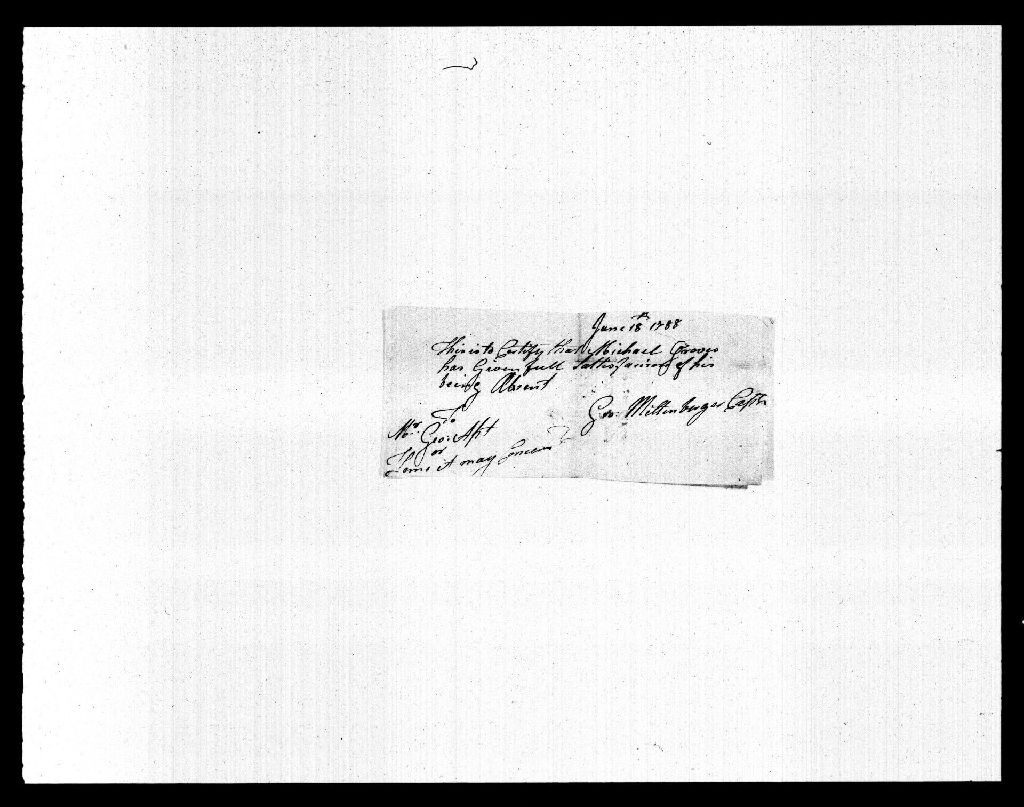 June 18th 1788
This is to Certify that Michael Groves
has Given full Sattisfacion of his
being Absent
Geo: Miltenberger Captn
To
Mr. Geo: Apt
or
Thome it may Concern